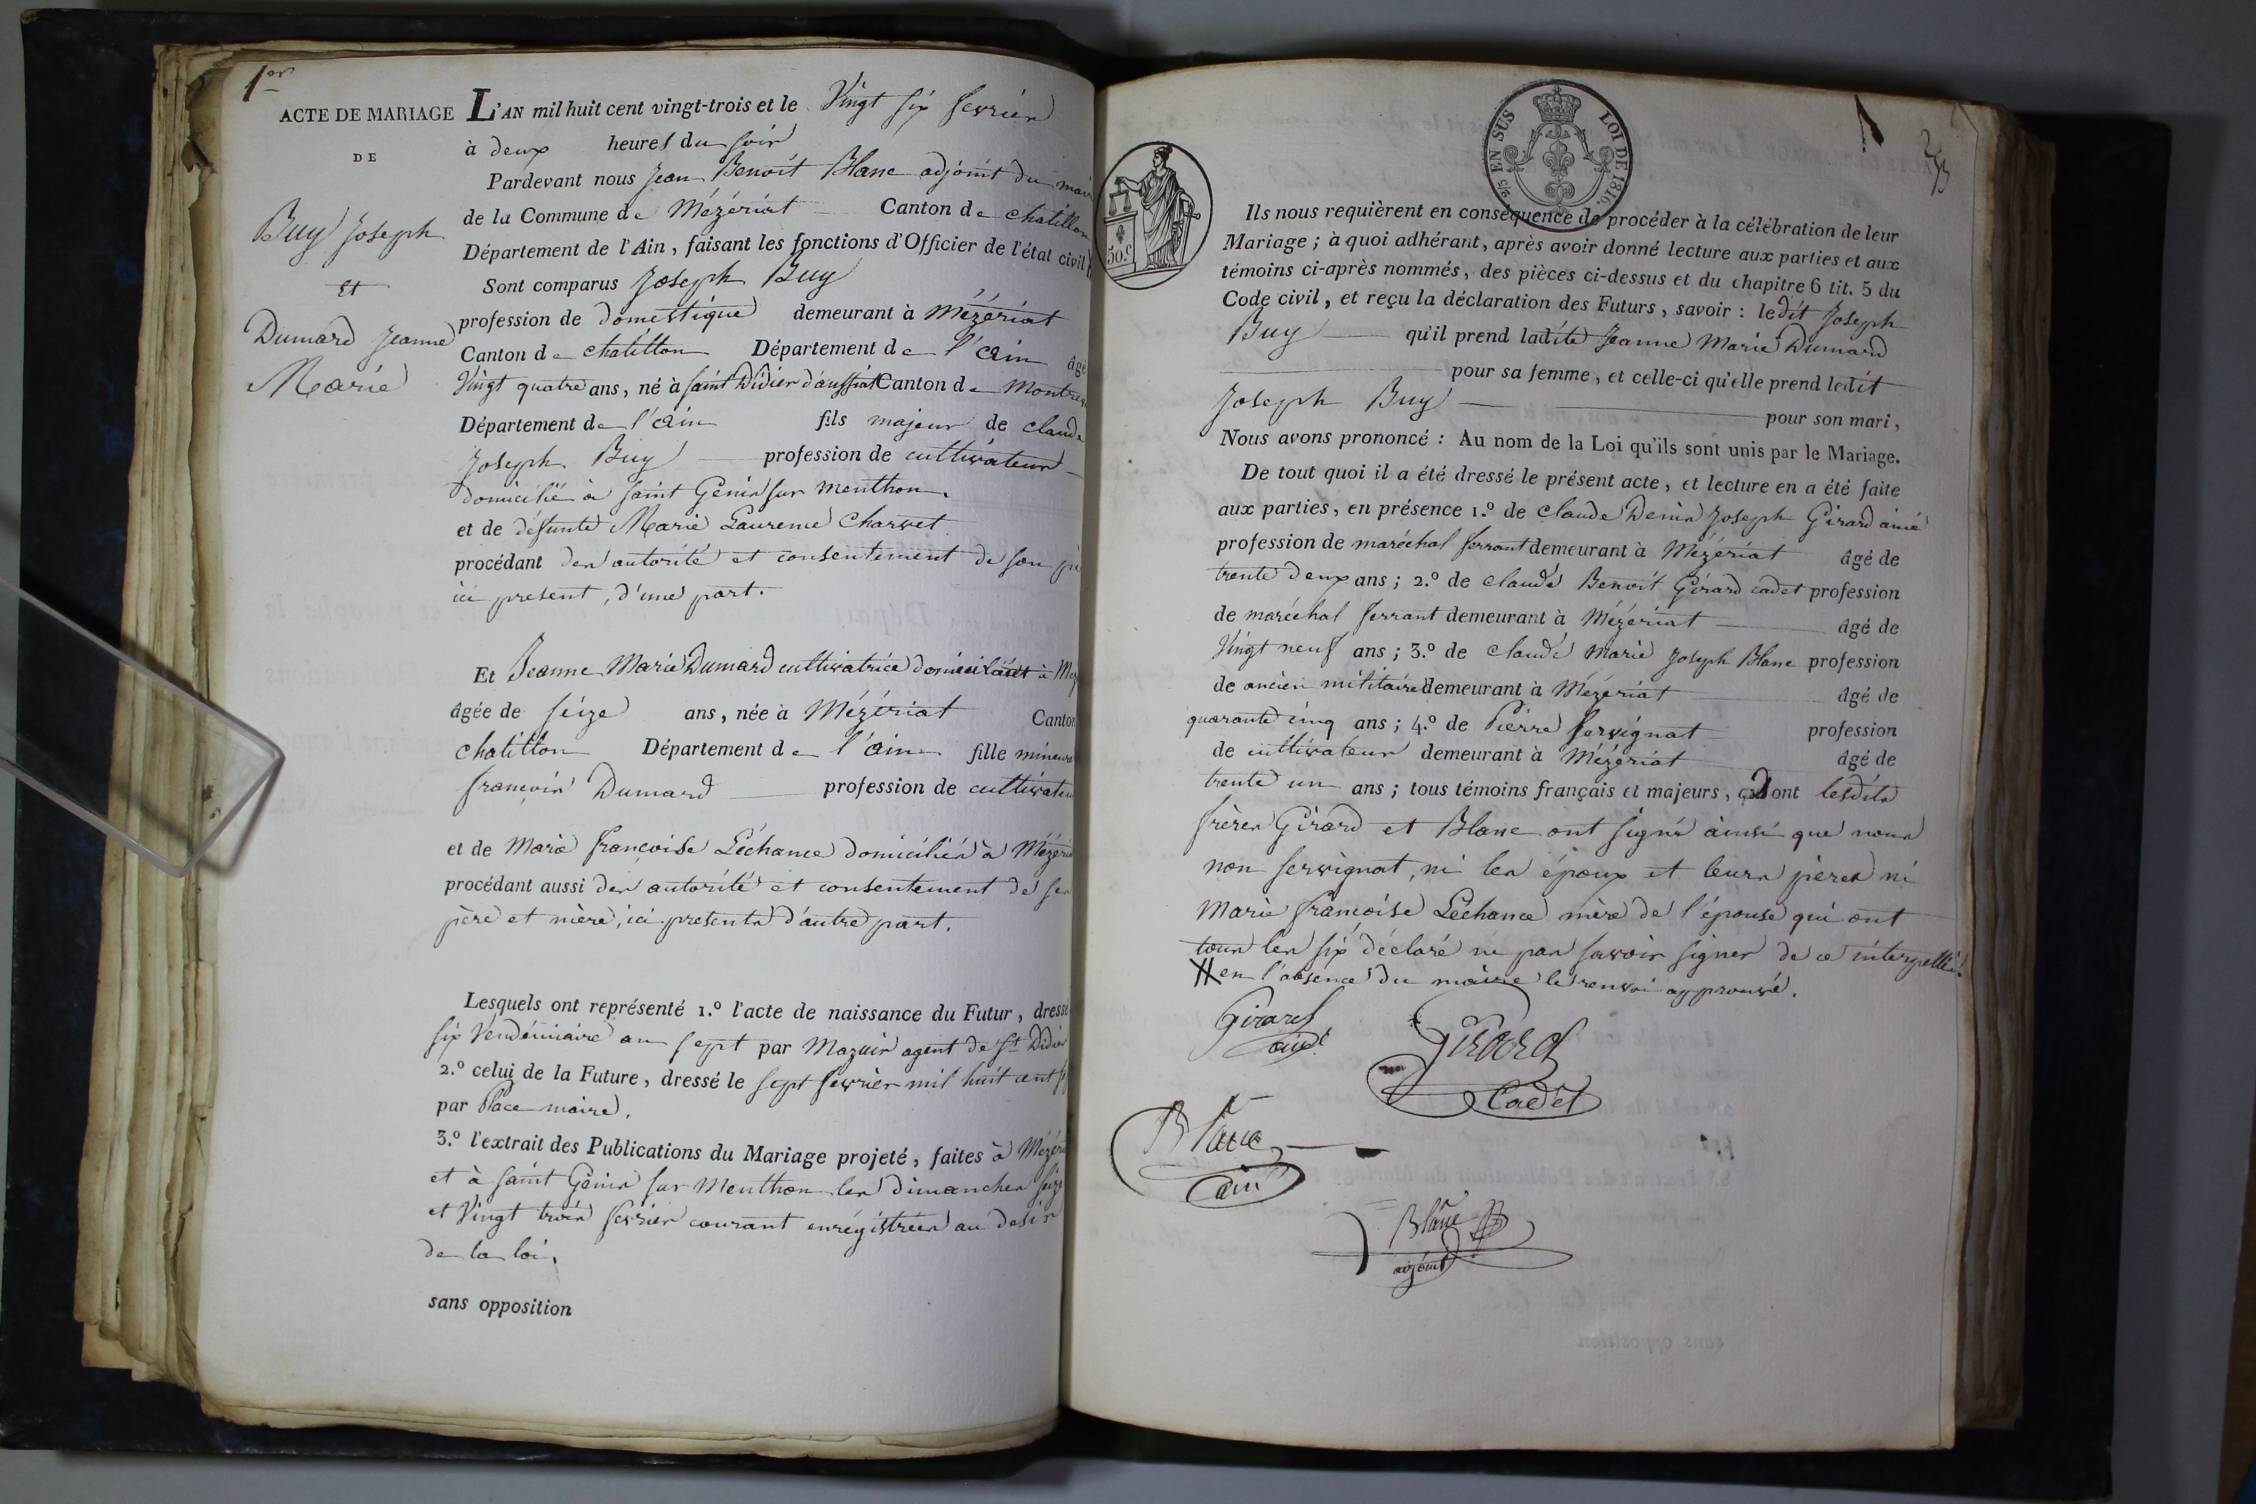 1er
ACTE DE MARIAGE
DE
Buy Joseph
et
Dumard Jeanne
Marie
L'AN mil huit cent vingt-trois et le Vingt six fevrier
à deux heures du soir
Pardevant nous Jean Benoit Blanc adjoint du mair
de la Commune de Mézériat Canton de chatillon
Département de l'Ain, faisant les fonctions d'Officier de l'état civil
Sont comparus Joseph Buy
profession de domestique demeurant à Mézériat
Canton de chatillon Département de l'ain âgé
Vingt quatre ans, né à saint Didier d'aussiat Canton de Montrev
Département de l'ain fils majeur de claude
Joseph Buy profession de cultivateur
domicilié à saint Genis sur menthon.
et de défunte Marie Laurence Charvet
procédant des autorité et consentement de son pè
ici present, d'une part.
Et Jeanne Marie Dumard cultivatrice à Méz
âgée de seize ans, née à Mézériat Canton
chatillon Département de l'ain fille mineure
françois Dumard profession de cultivateu
et de Marie françoise Léchance domiciliés à Mézéria
procédant aussi des autorité et consentement de ses
père et mère, ici presents d'autre part.
Lesquels ont représenté 1.º l'acte de naissance du Futur, dressé
six Vendémiaire an sept par Mazuir agent de St Didier
2.º celui de la Future, dressé le sept fevrier mil huit cent
par Place maire.
3.º l'extrait des Publications du Mariage projeté, faites à Mézéri
et à saint Genis sur Menthon les dimanches seize
et Vingt trois fevrier courant enrégistrées au desir
de la loi.
sans opposition
EN SUS LOI DE 1816.
50.c
Ils nous requièrent en conséquence de procéder à la célébration de leur
Mariage; à quoi adhérant, après avoir donné lecture aux parties et aux
témoins ci-après nommés, des pièces ci-dessus et du chapitre 6 tit. 5 du
Code civil, et reçu la déclaration des Futurs, savoir: ledit Joseph
Buy qu'il prend ladite Jeanne Marie Dumard
pour sa femme, et celle-ci qu'elle prend ledit
Joseph Buy pour son mari,
Nous avons prononcé: Au nom de la Loi qu'ils sont unis par le Mariage.
De tout quoi il a été dressé le présent acte, et lecture en a été faite
aux parties, en présence 1.º de claude Denis Joseph Girard ainé
profession de maréchal ferrant demeurant à Mézériat âgé de
trente deux ans; 2.º de claude Benoit Girard cadet profession
de maréchal ferrant demeurant à Mézériat âgé de
Vingt neuf ans; 3.º de claude marie Joseph Blanc profession
de ancien militaire demeurant à Mézériat âgé de
quarante cinq ans; 4.º de Pierre servignat profession
de cultivateur demeurant à Mézériat âgé de
trente un ans; tous témoins français et majeurs, Dont lesdits
frères Girard et Blanc ont signé ainsi que nous
non servignat, ni les époux et leurs pères ni
Marie françoise Léchance mère de l'épouse qui ont
tous les six déclaré ne pas savoir signer de ce interpellés.
# en l'absence du maire le renvoi approuvé.
Girard
ainé
Girard
Cadet
Blanc
Blanc
adjoint